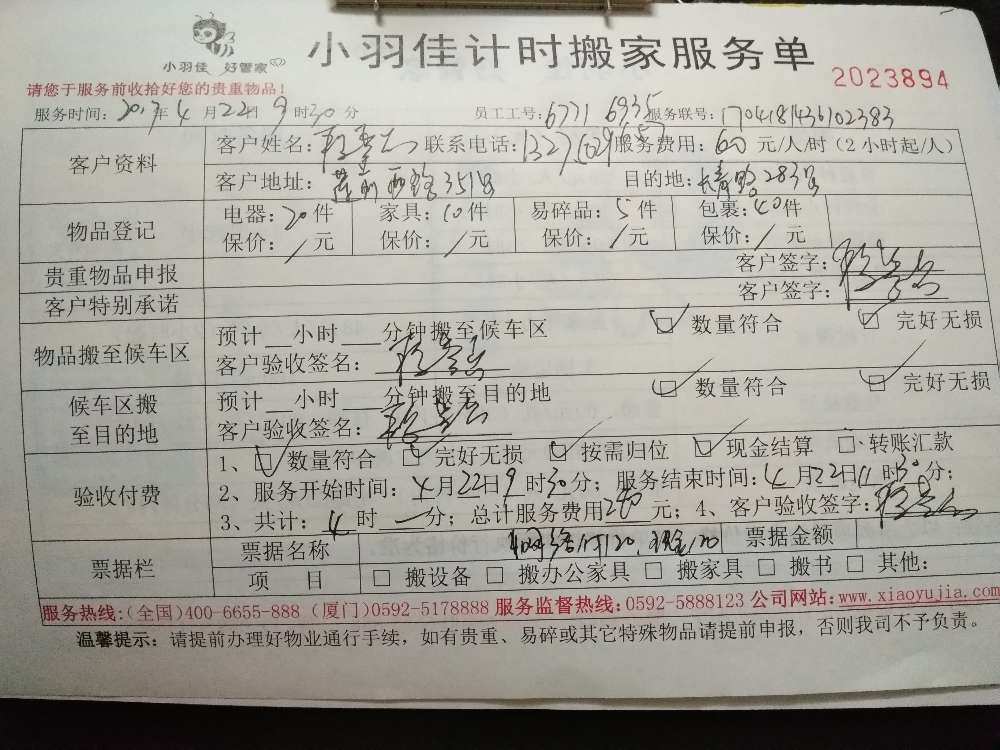 小羽佳 好管家
小羽佳计时搬家服务单
2023894
请您于服务前收拾好您的贵重物品!
服务时间: 2017年4月22日9时30分 员工工号: 6771 6935 服务联号: 1704181436102383
客户资料
客户姓名: 联系电话: 服务费用: 60元/人/时(2小时起/人)
客户地址: 莲前西路351号 目的地: 长青路283号
物品登记
电器: 20件 家具: 10件 易碎品: 5件 包裹: 40件
保价: /元 保价: /元 保价: /元 保价: /元
贵重物品申报 客户签字:
客户特别承诺 客户签字:
物品搬至候车区
预计__小时___分钟搬至候车区 数量符合 完好无损
客户验收签名:
候车区搬至目的地
预计__小时___分钟搬至目的地 数量符合 完好无损
客户验收签名:
验收付费
1、 数量符合 完好无损 按需归位 现金结算 转账汇款
2、服务开始时间: 4月22日9时30分; 服务结束时间: 4月22日11时30分;
3、共计: 4时一分; 总计服务费用240元; 4、客户验收签字:
票据栏
票据名称 网络付120, 现金120 票据金额
项 目 搬设备 搬办公家具 搬家具 搬书 其他:
服务热线:(全国)400-6655-888 (厦门)0592-5178888 服务监督热线:0592-5888123 公司网站:www.xiaoyujia.com
温馨提示: 请提前办理好物业通行手续,如有贵重、易碎或其它特殊物品请提前申报,否则我司不予负责。